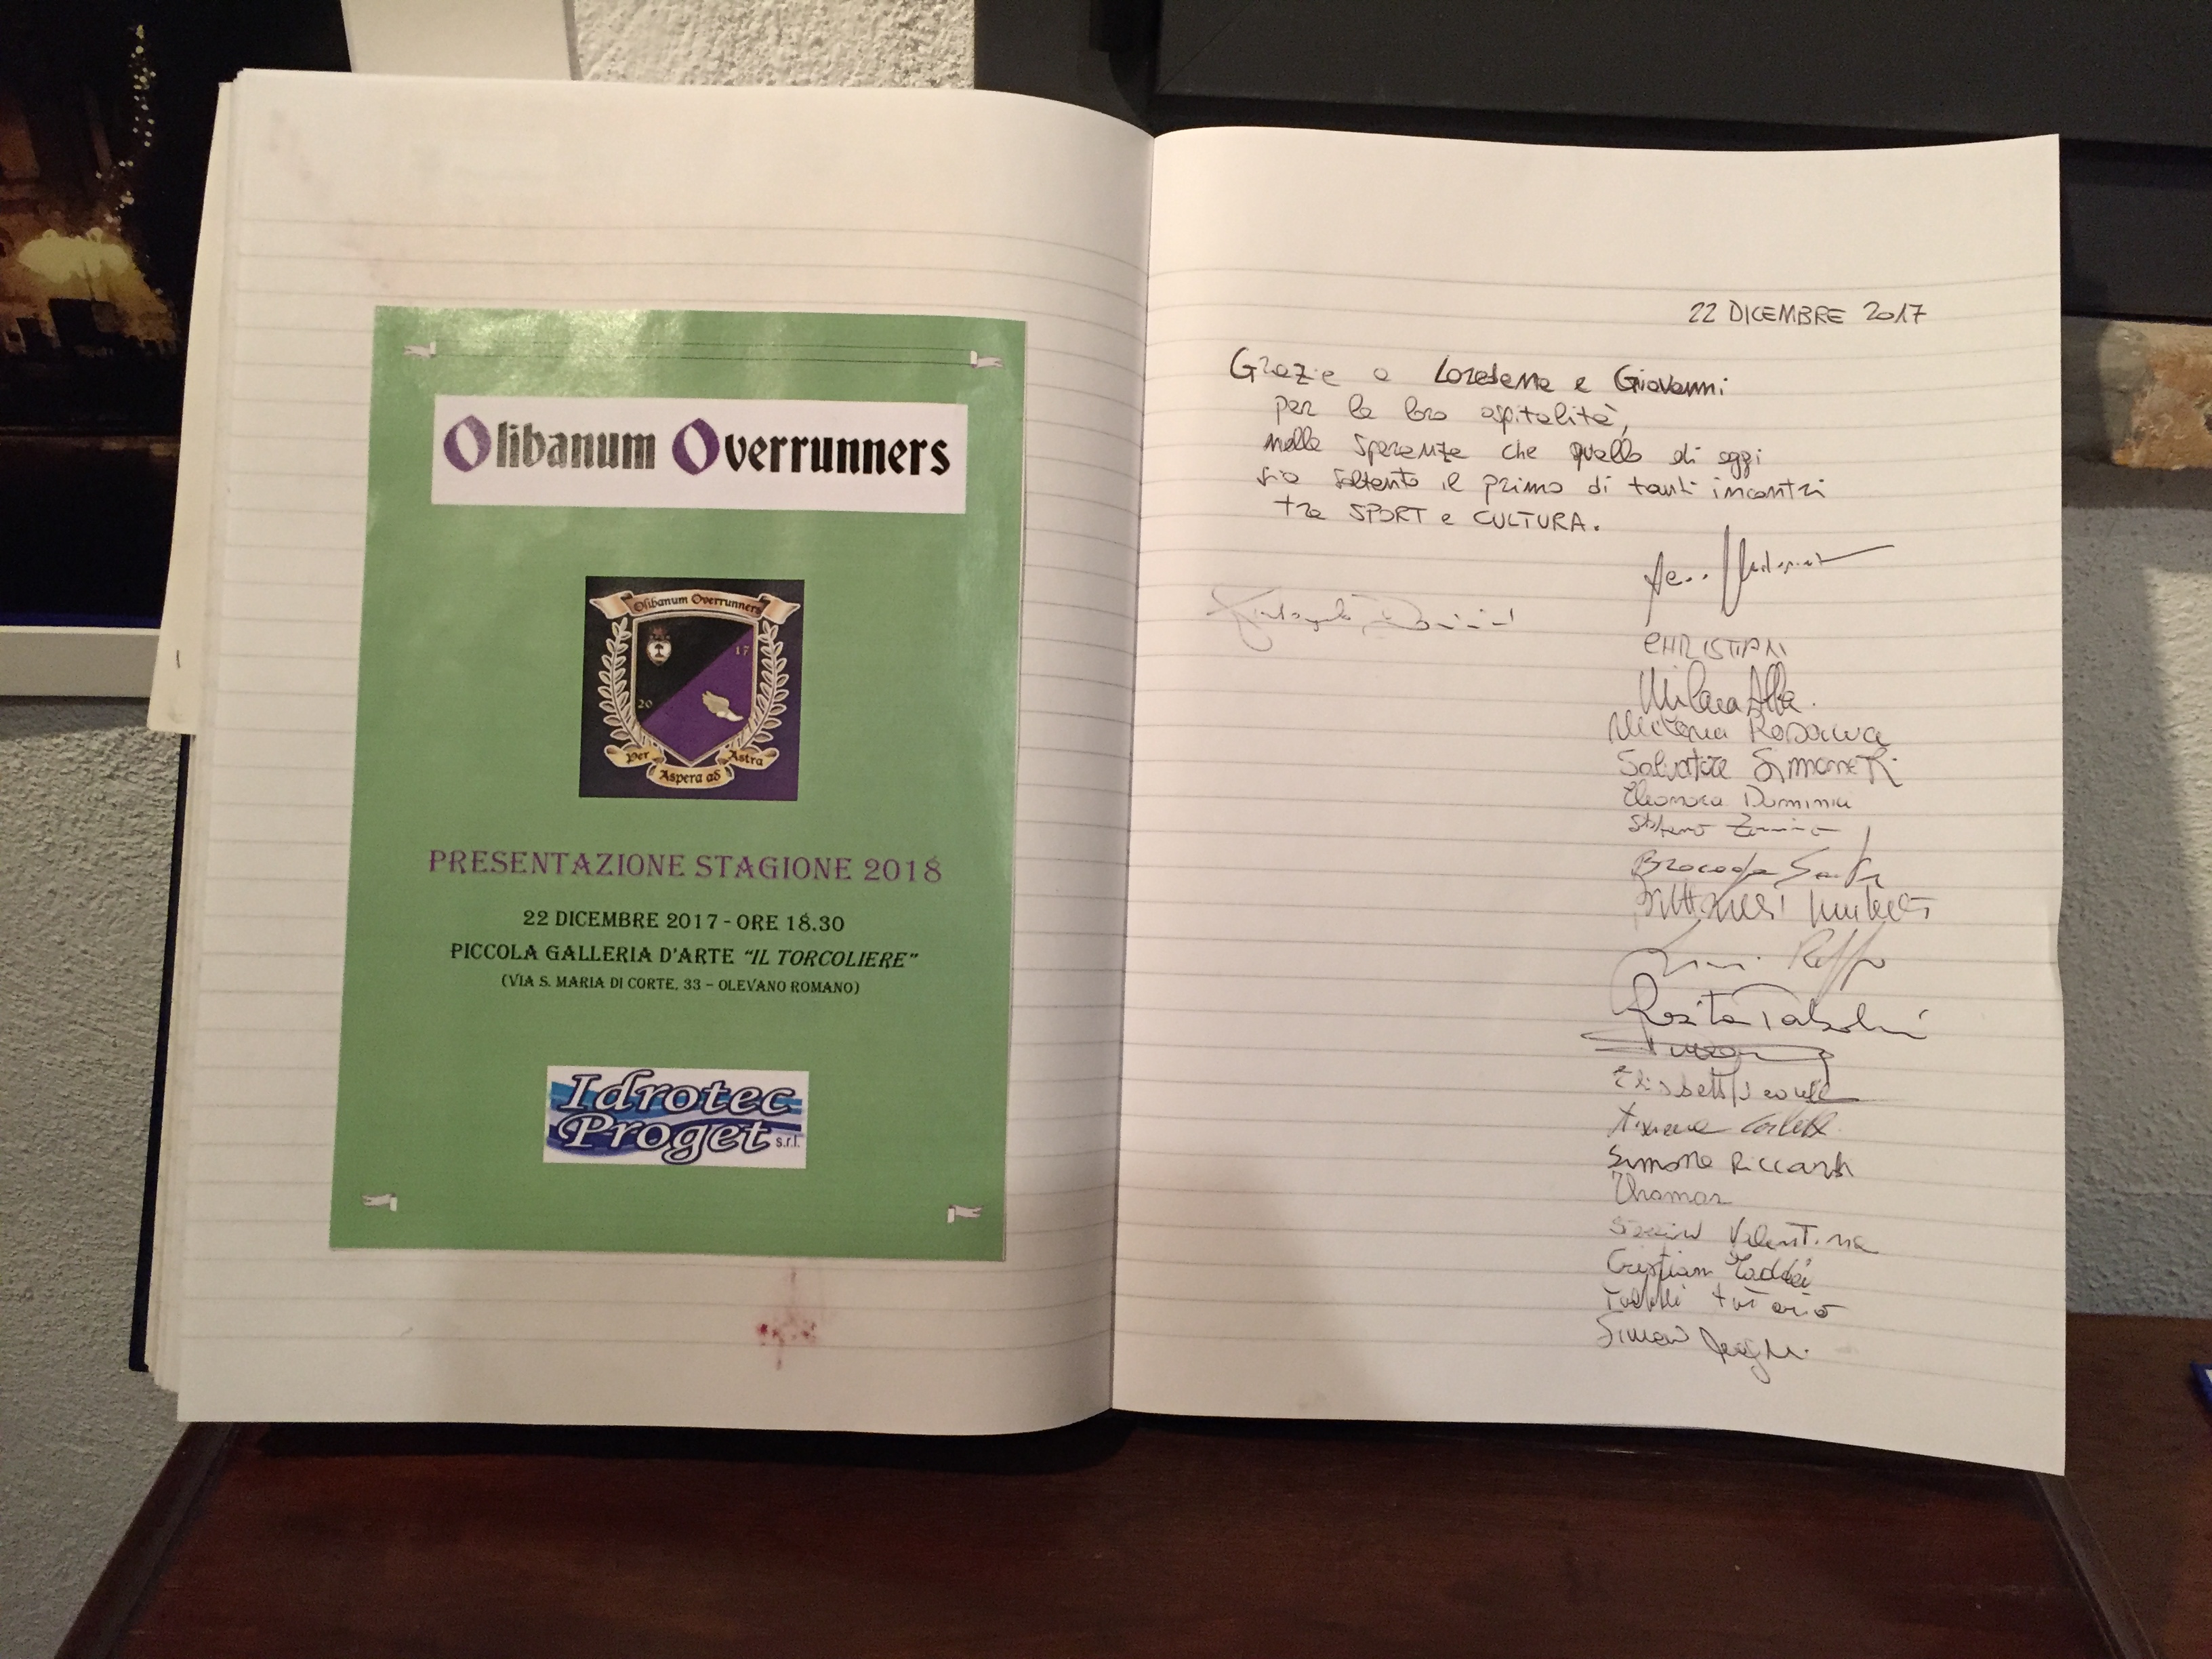 Olibanum Overrunners
Olibanum Overrunners
17
20
Per Aspera ad Astra
PRESENTAZIONE STAGIONE 2018
22 DICEMBRE 2017 - ORE 18.30
PICCOLA GALLERIA D'ARTE “IL TORCOLIERE”
(VIA S. MARIA DI CORTE, 33 – OLEVANO ROMANO)
Idrotec
Proget s.r.l.
22 DICEMBRE 2017
Grazie a Loredana e Giovanni
per la loro ospitalità,
nella speranza che quello di oggi
sia soltanto il primo di tanti incontri
tra SPORT e CULTURA.
CHRISTIAN
Milana Alba.
Rosanna
Salvatore Simonetti
Eleonora
Stefano
Rosita
Simone Riccardi
Thomas
Valentina
Cristian Taddei